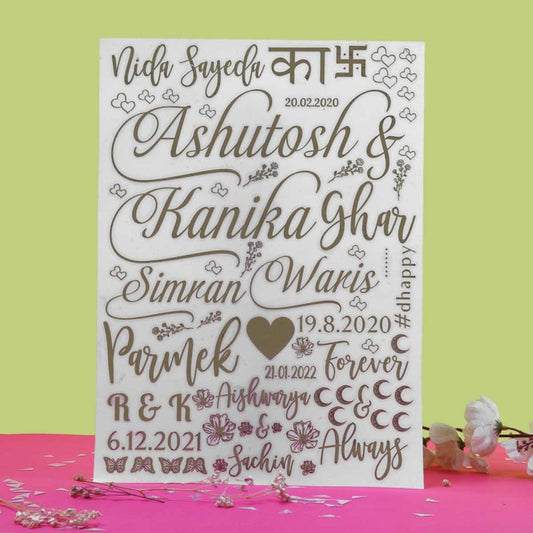 Nida Sayeda का 卐
20.02.2020
Ashutosh &
Kanika Ghar
Simran Waris
#dhappy
Parmek
19.8.2020
21.01.2022
Forever
R & K
Aishwarya
&
Sachin
&
Always
6.12.2021